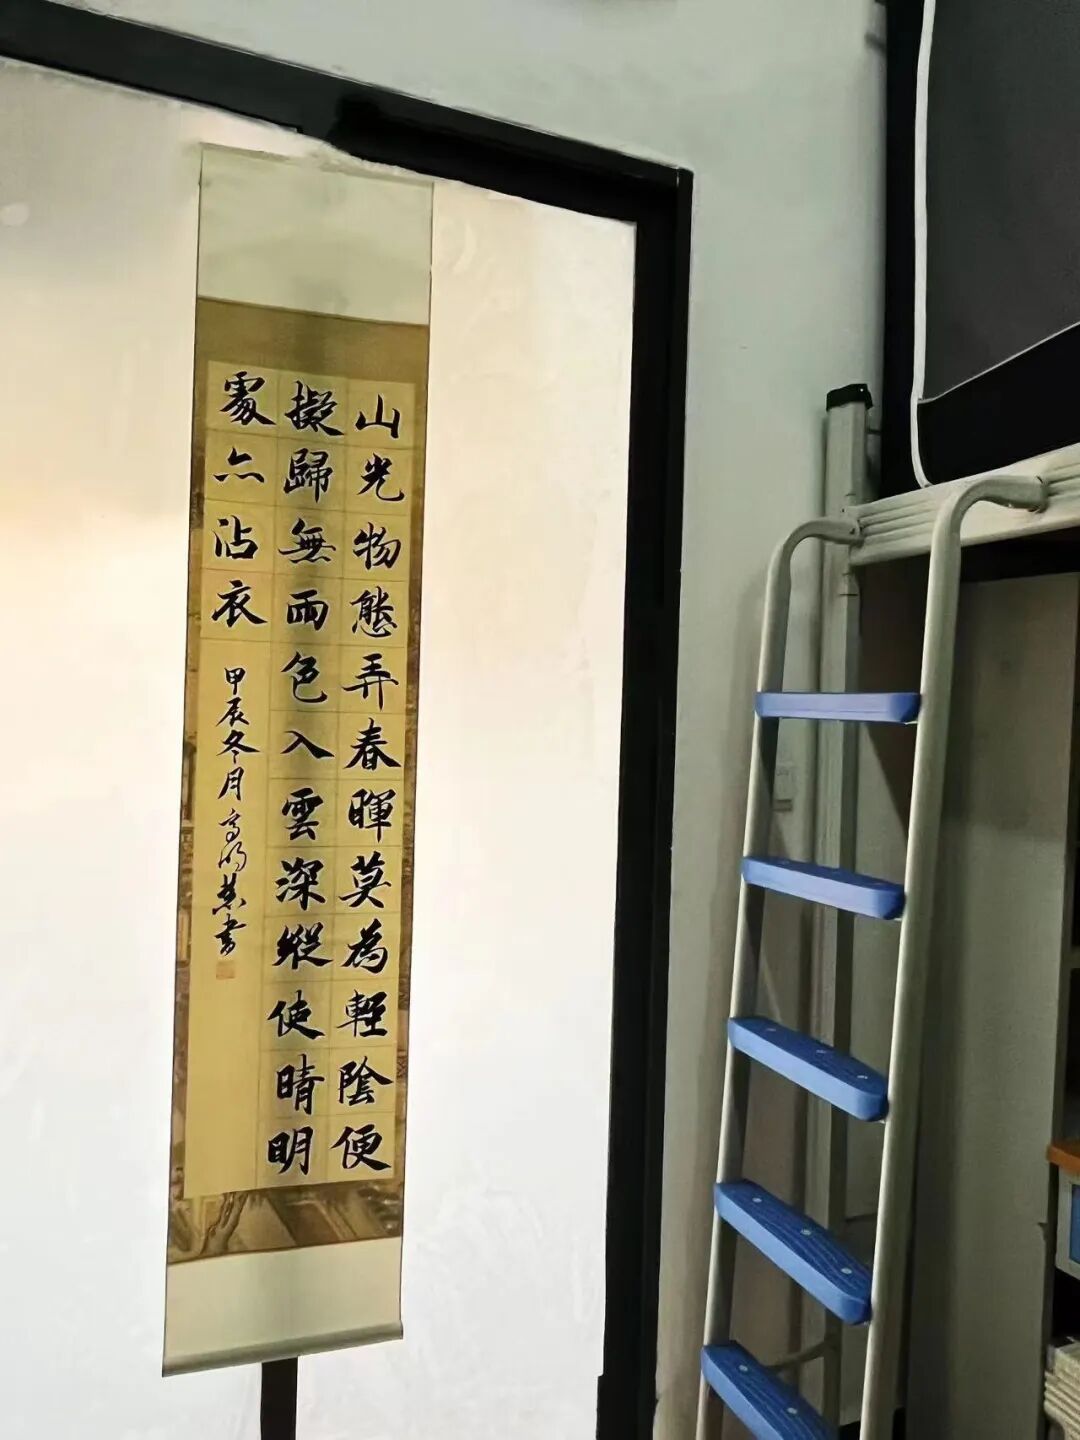 山光物態弄春暉莫為輕陰便
擬歸無雨色入雲深縱使晴明
處亦沾衣 甲辰冬月高明慧書